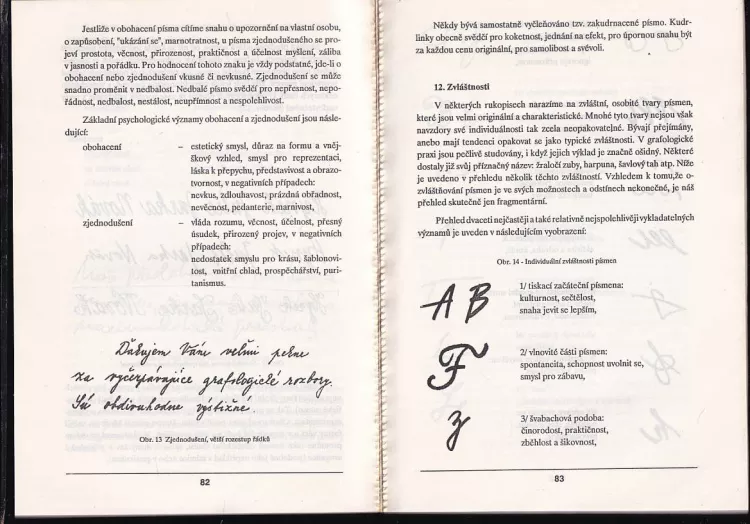 Jestliže v obohacení písma cítíme snahu o upozornění na vlastní osobu,
o zapůsobení, "ukázání se", marnotratnost, u písma zjednodušeného se pro-
jeví prostota, věcnost, přirozenost, praktičnost a účelnost myšlení, záliba
v jasnosti a pořádku. Pro hodnocení tohoto znaku je vždy podstatné, jde-li o
obohacení nebo zjednodušení vkusné či nevkusné. Zjednodušení se může
snadno proměnit v nedbalost. Nedbalé písmo svědčí pro nepřesnost, nepo-
řádnost, nedbalost, nestálost, neupřímnost a nespolehlivost.
Základní psychologické významy obohacení a zjednodušení jsou násle-
dující:
obohacení – estetický smysl, důraz na formu a vněj-
škový vzhled, smysl pro reprezentaci,
láska k přepychu, představivost a obrazo-
tvornost, v negativních případech:
nevkus, zdlouhavost, prázdná obřadnost,
nevěcnost, pedanterie, marnivost,
zjednodušení – vláda rozumu, věcnost, účelnost, přesný
úsudek, přirozený projev, v negativních
případech:
nedostatek smyslu pro krásu, šablonovi-
tost, vnitřní chlad, prospěchářství, puri-
tanismus.
Ďakujem Vám veľmi pekne
za vyčerpávajúce grafologické rozbory.
Sú obdivuhodne výstižné.
Obr. 13 Zjednodušení, větší rozestup řádků
82
Někdy bývá samostatně vyčleňováno tzv. zakudrnacené písmo. Kudr-
linky obecně svědčí pro koketnost, jednání na efekt, pro úpornou snahu být
za každou cenu originální, pro samolibost a svévoli.
12. Zvláštnosti
V některých rukopisech narazíme na zvláštní, osobité tvary písmen,
které jsou velmi originální a charakteristické. Mnohé tyto tvary nejsou však
navzdory své individuálnosti tak zcela neopakovatelné. Bývají přejímány,
anebo mají tendenci opakovat se jako typické zvláštnosti. V grafologické
praxi jsou pečlivě studovány, i když jejich výklad je značně ošidný. Některé
dostaly již svůj příznačný název: žraločí zuby, harpuna, šavlový tah atp. Níže
je uvedeno v přehledu několik těchto zvláštností. Vzhledem k tomu,že o-
zvláštňování písmen je ve svých možnostech a odstínech nekonečné, je náš
přehled skutečně jen fragmentární.
Přehled dvaceti nejčastěji a také relativně nejspolehlivěji vykladatelných
významů je uveden v následujícím vyobrazení:
Obr. 14 - Individuální zvláštnosti písmen
A B 1/ tiskací začáteční písmena:
kulturnost, sečtělost,
snaha jevit se lepším,
F 2/ vlnovité části písmen:
spontancita, schopnost uvolnit se,
smysl pro zábavu,
z 3/ švabachová podoba:
činorodost, praktičnost,
zběhlost a šikovnost,
83